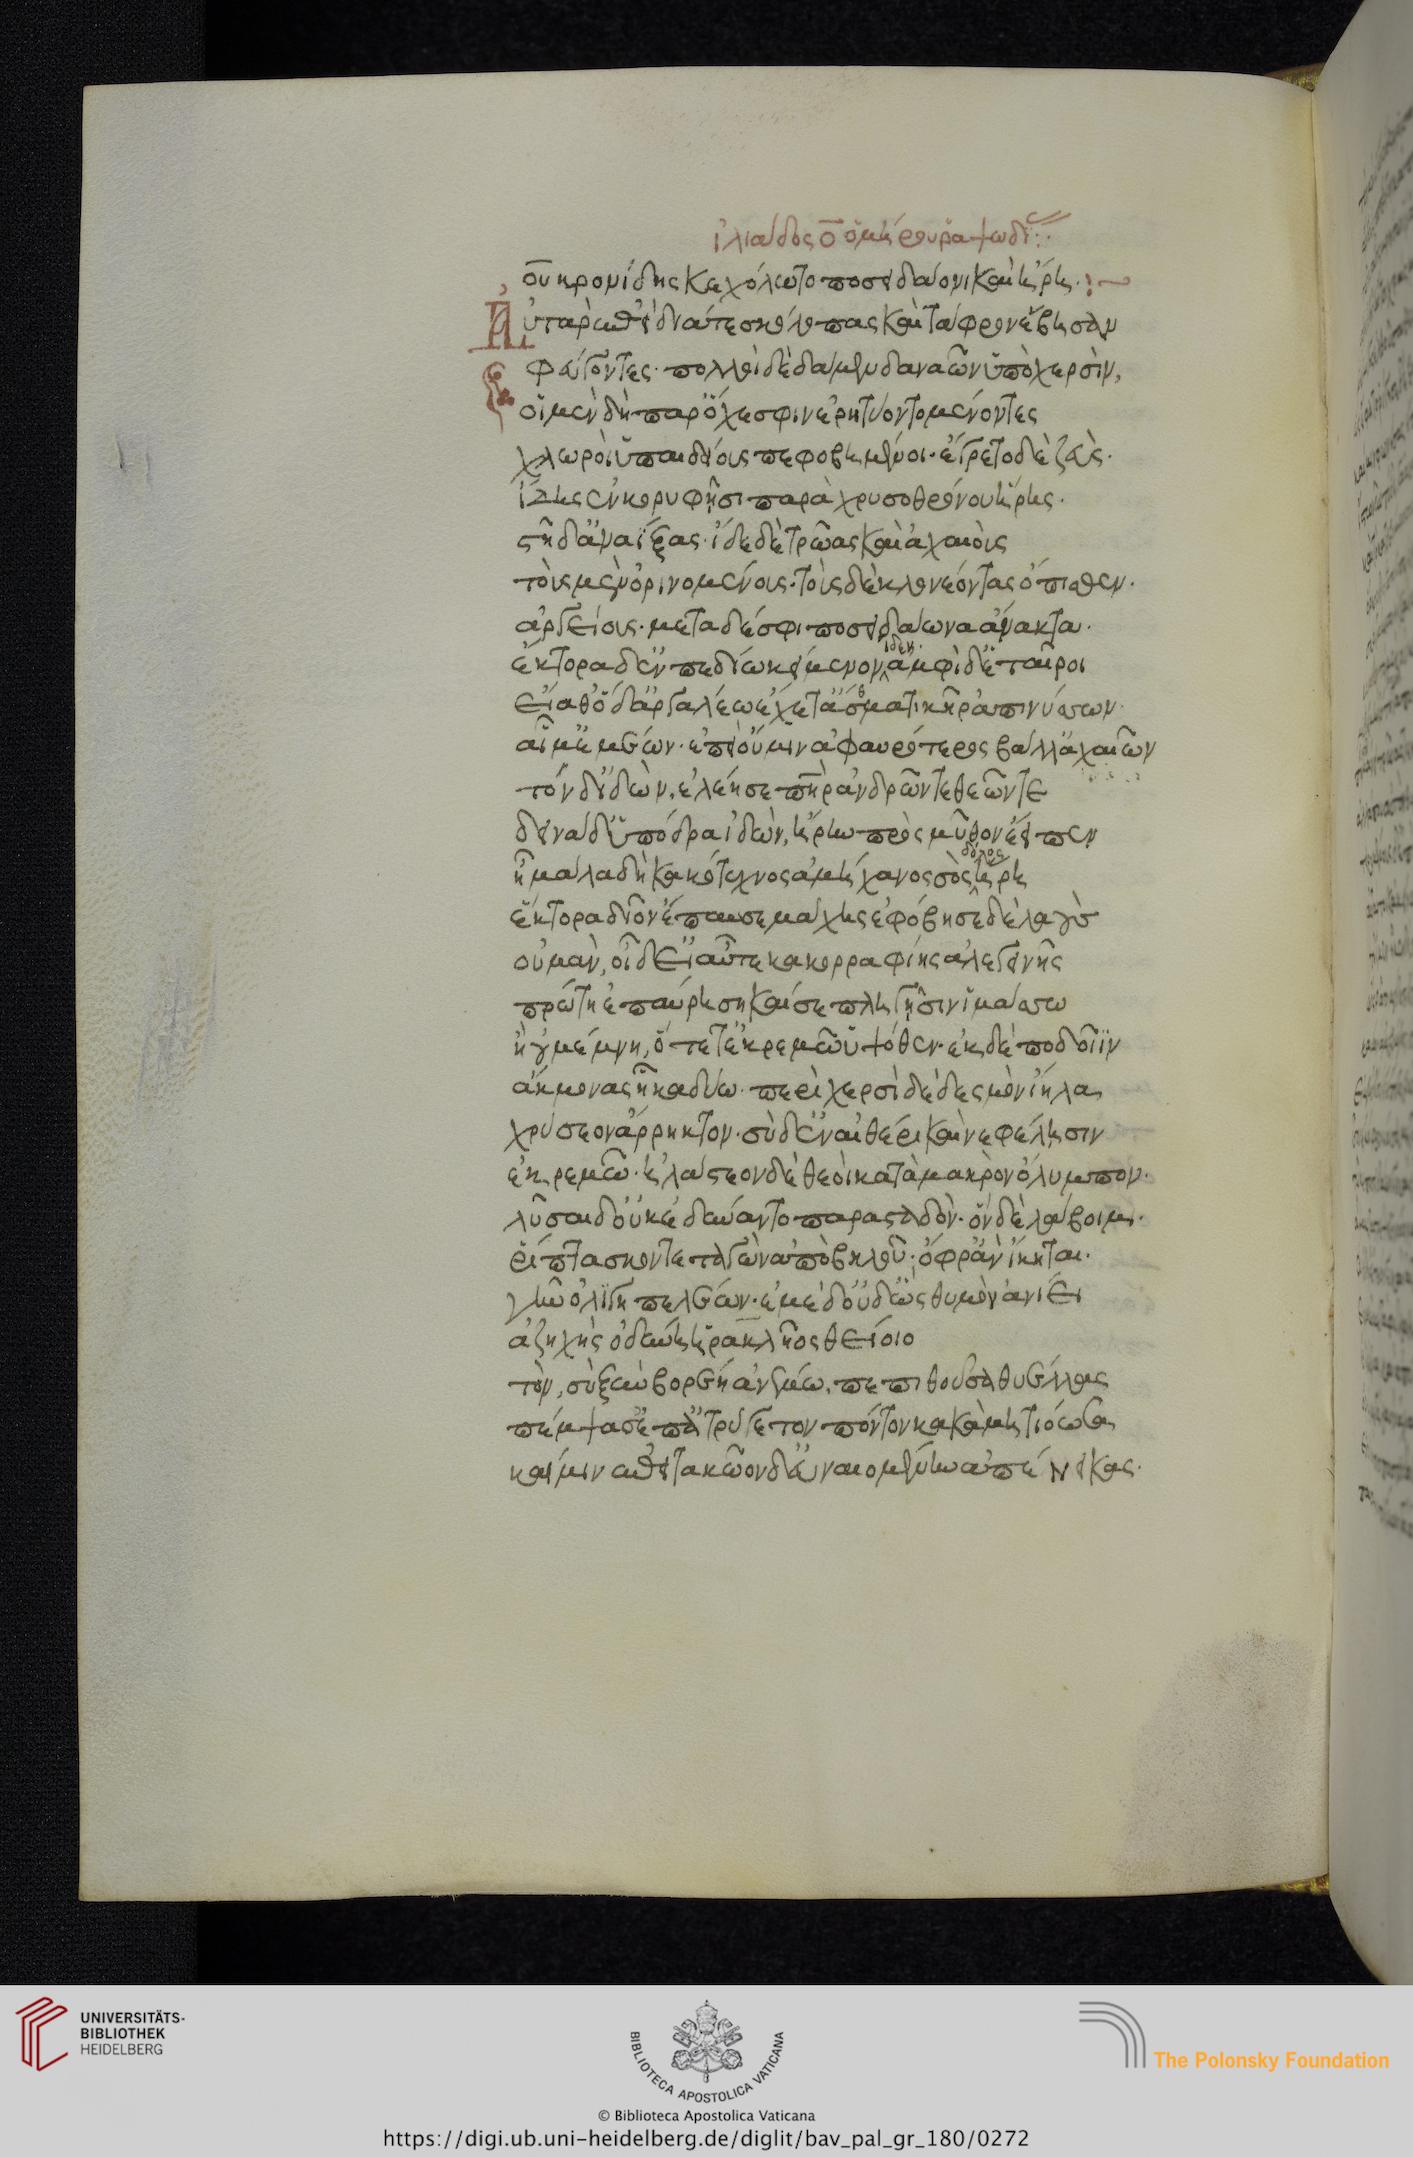 ἰλιάδος ο ὁμήρου ῥαψωδί
οὖ κρονίδης κεχόλωτο ποσειδάονι καὶ ἥρη
Αὐτὰρ ἐπεὶ διά τε σκόλοπας καὶ τάφρον ἔβησαν
φεύγοντες· πολλοὶ δὲ δάμεν δαναῶν ὑπὸ χερσὶν,
οἱ μὲν δὴ παρ ὄχεσφιν ἐρητύοντο μένοντες
χλωροὶ ὑπαὶ δείους πεφοβημένοι· ἔγρετο δὲ ζεὺς·
ἴδης ἐν κορυφῆσι παρὰ χρυσοθρόνου ἥρης·
στῆ δ ἄν ἀίξας· ἴδε δὲ τρῶας καὶ ἀχαιοὺς
τοὺς μὲν ὀρινομένους· τοὺς δὲ κλονέοντας ὄπισθεν·
ἀργείους· μετὰ δέ σφι ποσειδάωνα ἄνακτα·
ἕκτορα δ ἐν πεδίω κείμενον ἰδεν· ἀμφὶ δ ἑταῖροι
εἵαθ ὁ δ ἀργαλέω ἔχετ ἄσθματι κῆρ ἀπινύσσων·
αἷμ ἐμέων· ἐπεὶ οὔ μιν ἀφαυρότερος βάλλ ἀχαιῶν
τὸν δὲ ἰδὼν, ἐλέησε πατὴρ ἀνδρῶν τε θεῶν τε
δεινὰ δ ὑπόδρα ἰδὼν, ἥρην πρὸς μῦθον ἔειπεν
ἦ μάλα δὴ κακότεχνος ἀμήχανος σὸς δόλος ἥρη
ἕκτορα δῖον ἔπαυσε μάχης ἐφόβησε δὲ λαοὺς
οὐ μὰν, οἶδ εἰ αὖτε κακορραφίης ἀλεγεινῆς
πρώτη ἐπαύρηαι καί σε πληγῇσιν ἱμάσσω
ἦ οὐ μέμνη, ὅτε τ ἐκρέμω ὑψόθεν· ἐκ δὲ ποδοῖιν
ἄκμονας ἧκα δύω· περὶ χερσὶ δὲ δεσμὸν ἴηλα
χρύσεον ἄρρηκτον· σὺ δ ἐν αἰθέρι καὶ νεφέλησιν
ἐκρέμω· ἠλάστεον δὲ θεοὶ κατὰ μακρὸν ὄλυμπον·
λῦσαι δ οὐκ ἐδύναντο παρασταδὸν· ὃν δὲ λάβοιμι·
ῥίπτασκον τεταγὼν ἀπὸ βηλοῦ· ὄφρ ἂν ἵκηται·
γῆν ὀλιγηπελέων· ἐμὲ δ οὐδ ὣς θυμὸν ἀνίει
ἀζηχὴς ὀδύνη ἡρακλῆος θείοιο
τὸν, σὺ ξὺν βορέη ἀνέμω, πεπιθοῦσα θυέλλας
πέμψας ἐπ ἀτρύγετον πόντον κακὰ μητιόωσα
καί μιν ἔπειτα κόωνδ εὐναιομένην ἀπένεικας·
UNIVERSITÄTS-
BIBLIOTHEK
HEIDELBERG
BIBLIOTECA APOSTOLICA VATICANA
The Polonsky Foundation
© Biblioteca Apostolica Vaticana
https://digi.ub.uni-heidelberg.de/diglit/bav_pal_gr_180/0272